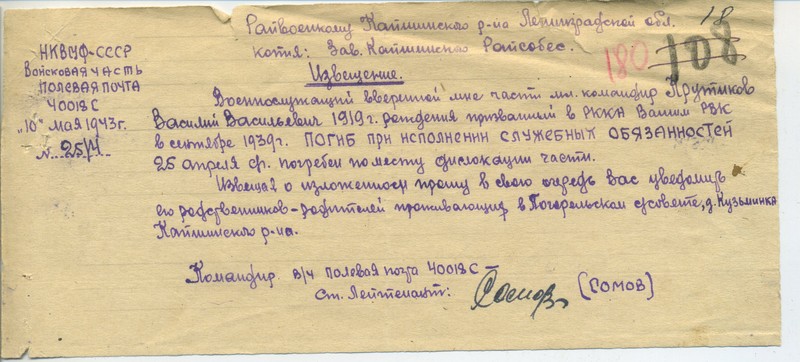 Райвоенкому Капшинского р-на Ленинградской обл.
18
копия: Зав. Капшинского Райсобес.
180 108
Извещение.
НКВМФ-СССР
Войсковая часть
полевая почта
40018 С
"10" мая 1943г.
№ 25/4
Военнослужащий вверенной мне части мл. командир Крутиков
Василий Васильевич 1919г. рождения призванный в РККА Вашим РВК
в сентябре 1939г. ПОГИБ при исполнении СЛУЖЕБНЫХ ОБЯЗАННОСТЕЙ
25 апреля с/г. погребен по месту дислокации части.
Извещая о изложенном прошу в свою очередь вас уведомить
его родственников-родителей проживающих в Погорельском с/совете, д. Кузьминка
Капшинского р-на.
Командир в/ч полевая почта 40018 С —
Ст. Лейтенант: Сомов (СОМОВ)